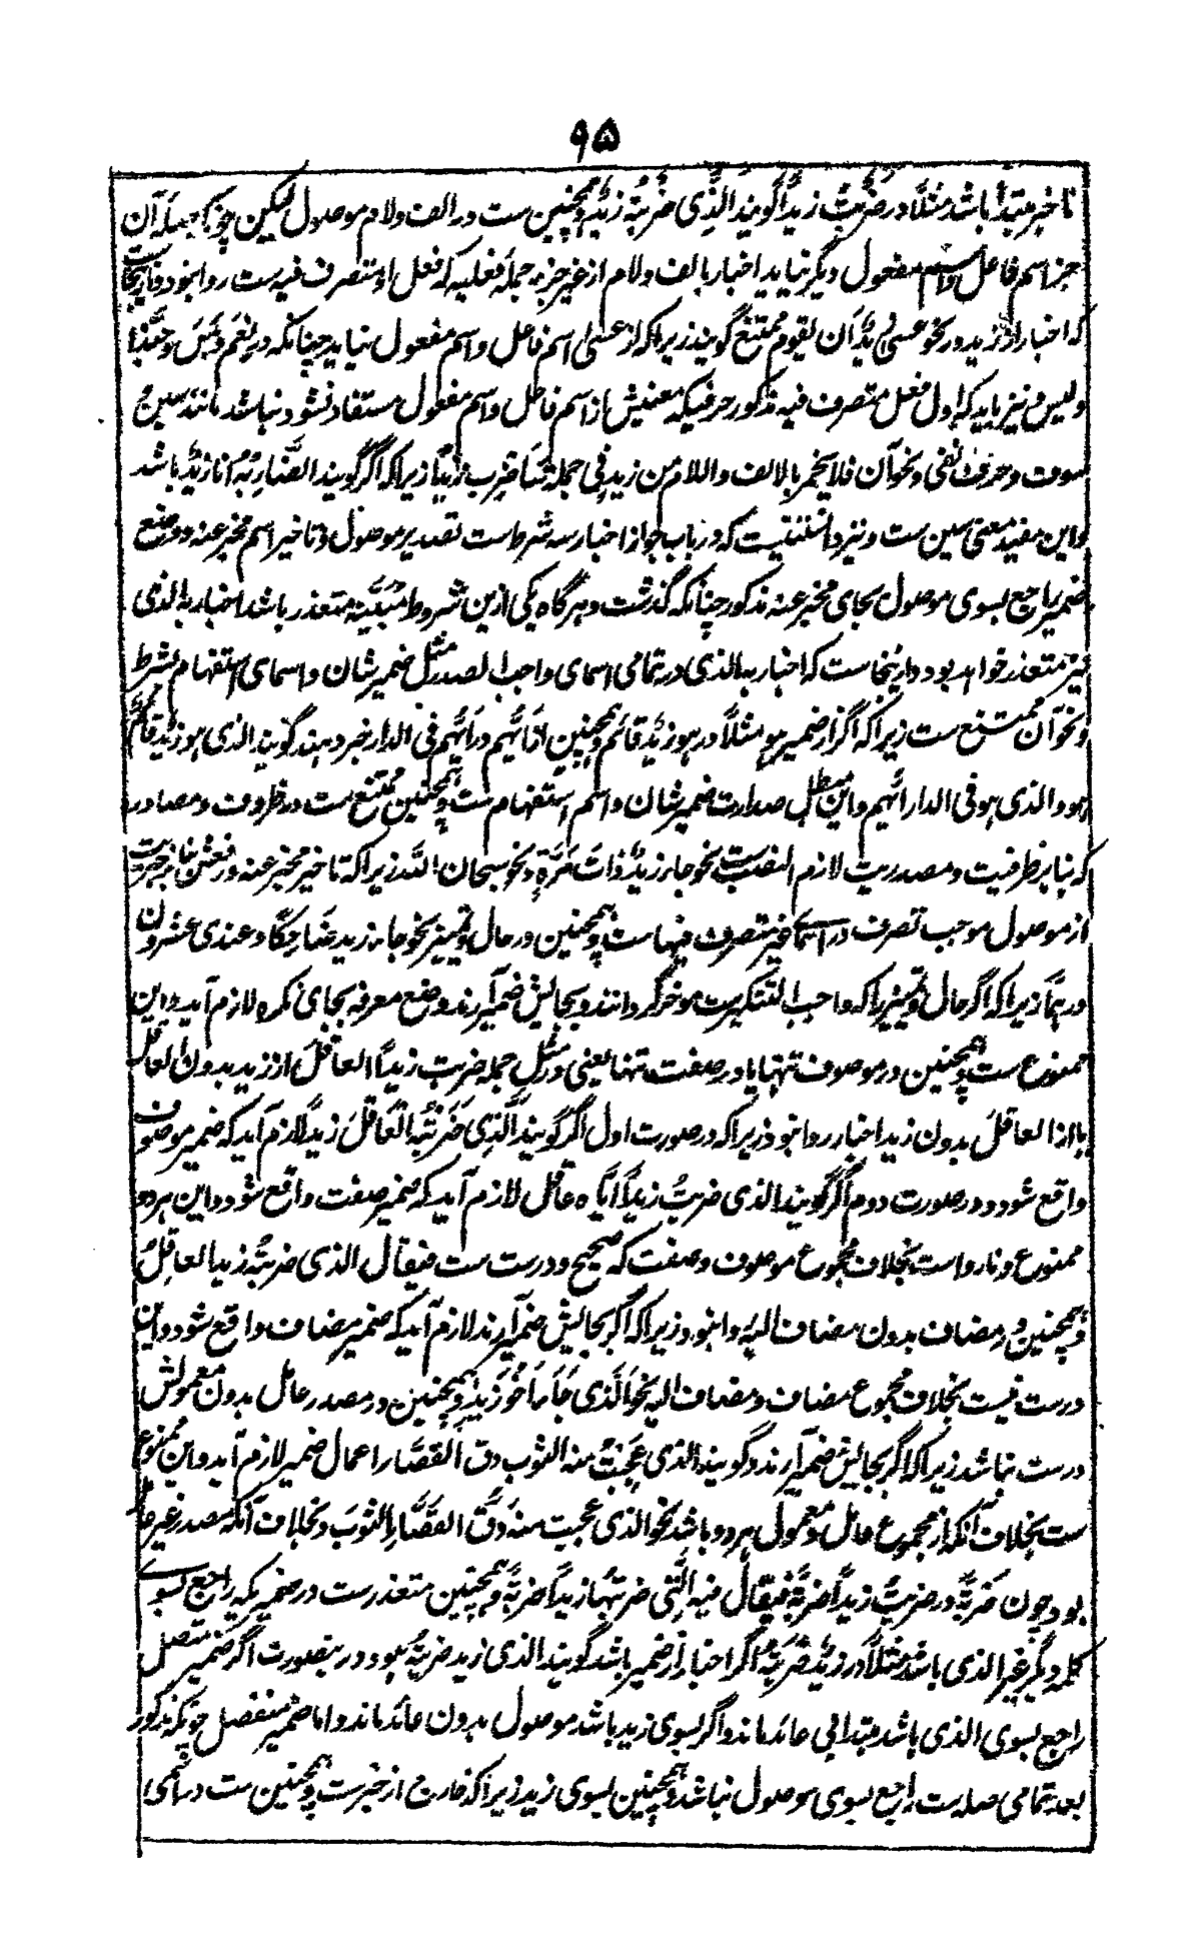 ۹۵
تا خبر مبتدا باشد مثلاً در ضَرَبتُ زیداً گویند الَّذِی ضَرَبتُه زیدٌ و همچنین ست در الف و لام موصول لیکن چونکه صلهٔ آن
جز اسم فاعل و اسم مفعول دیگر نیاید اخبار بالف و لام از غیر جزء جملهٔ فعلیه که فعل او متصرف فیه ست روا نبود
که اخبار از زید در نحو عسیٰ زیدٌ اَن یقومَ ممتنع گویند زیرا که از عسیٰ اسم فاعل و اسم مفعول نیاید چنانکه در نِعمَ و بِئسَ و حَبَّذا
و لیس و نیز باید که اول فعل متصرف فیه مذکور حرفیکه معنیش از اسم فاعل و اسم مفعول مستفاد نشود نباشد مانند سین و
سوف و حرف نفی و نحو آن فلا یخبر بالالف و اللام من زید فی جملة سَاَضرِب زیداً زیرا که اگر گویند الضَّارِبُه انا زیدٌ باشد
و این مفید معنی سین ست و نیز دانستنیست که در باب جواز اخبار سه شرط ست تصدیر موصول و تاخیر اسم مخبر عنه و وضع
ضمیر راجع بسوی موصول بجای مخبر عنه مذکور چنانکه گذشت و هر گاه یکی ازین شروط مُبَیَّنه متعذر باشد اخبار به الذی
نیز متعذر خواهد بود و ازینجاست که اخبار به الذی در تمامی اسمای واجب الصدر مثل ضمیر شان و اسمای استفهام و شرط
و نحو آن ممتنع ست زیرا که اگر از ضمیر هو مثلاً در هو زیدٌ قائم و همچنین از ایُّهم در اَیُّهم فی الدار خبر دهند گویند الذی هو زیدٌ قائمٌ
هو و الذی هو فی الدار ایُّهم و این مبطل صدارت ضمیر شان و اسم استفهام ست و همچنین ممتنع ست در ظروف و مصادر
که بنا بر ظرفیت و مصدریت لازم النصب ست نحو جاء زیدٌ ذاتَ مَرَّةٍ و نحو سبحان الله زیرا که تاخیر مخبر عنه و رفعش بنا بر خبریت
از موصول موجب تصرف در اسمای غیر متصرف فیها ست و همچنین در حال و تمییز نحو جاء زید ضَاحِکاً و عندی عشرون
درهماً زیرا که اگر حال و تمییز را که واجب التنکیر ست موخر گردانند و بجایش ضمیر آرند وضع معرفه بجای نکره لازم آید و این
ممنوع ست و همچنین در موصوف تنها یا در صفت تنها یعنی در مثل جمله ضربت زیداً العاقلَ از زید بدون العاقل
یا از العاقلَ بدون زید اخبار روا نبود زیرا که در صورت اول اگر گویند الَّذِی ضَرَبتُه العَاقلَ زیدٌ لازم آید که ضمیر موصوف
واقع شود و در صورت دوم اگر گویند الذی ضربتُ زیداً ایاه عاقل لازم آید که ضمیر صفت واقع شود و این هر دو
ممنوع و نارواست بخلاف مجموع موصوف و صفت که صحیح و درست ست فیقال الذی ضربتُه زید العاقِلُ
و همچنین در مضاف بدون مضاف الیه روا نبود زیرا که اگر بجایش ضمیر آرند لازم آید که ضمیر مضاف واقع شود و این
درست نیست بخلاف مجموع مضاف و مضاف الیه نحو اَلَّذی جَاءَ اَخُو زیدٍ و همچنین در مصدر عامل بدون معمولش
درست نباشد زیرا که اگر بجایش ضمیر آرند و گویند الذی عَجِبتُ منه الثوب دق القصَّار اعمال ضمیر لازم آید و این ممنوع
ست بخلاف آنکه از مجموع عامل و معمول هر دو باشد نحو الذی عجبت منه دَقُّ القَصَّارِ الثوبَ و بخلاف آنکه مصدر غیر عامل
بود چون ضَربَةً در ضربتُ زیداً ضربةً فیقال فیه الَّتی ضربتها زیداً ضربةٌ و همچنین متعذر ست در ضمیریکه راجع بسوے
کلمه دیگر غیر الذی باشد مثلاً در زیدٌ ضَرَبتُه اگر اخبار از ضمیر باشد گویند الذی زید ضربتُه هو و درینصورت اگر ضمیر متصل
راجع بسوی الذی باشد مبتدا بی عائد ماند و اگر بسوی زید باشد موصول بدون عائد ماند و اما ضمیر منفصل چونکه مذکور
بعد تمامی صله ست راجع بسوی موصول نباشد و همچنین بسوی زید زیرا که خارج از خبر ست و همچنین ست در اسمی